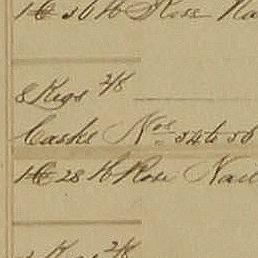 1 C 16 lb Rose Na
8 Kegs 2/8
Casks Nos. 54 to 56
1 C 28 lb Rose Nail
Kegs 2/8